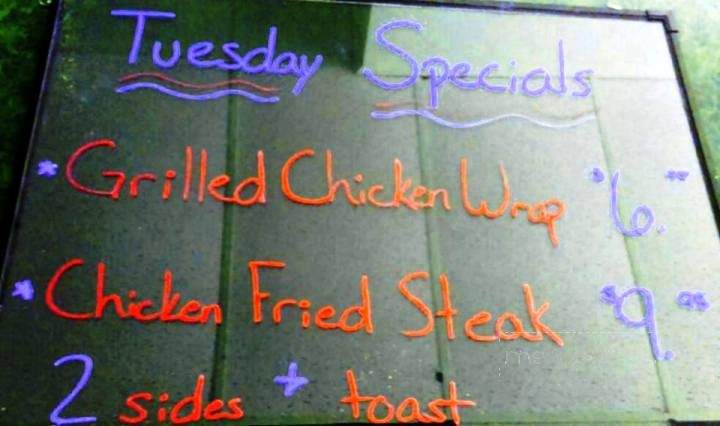 Tuesday Specials
* Grilled Chicken Wrap $6.
* Chicken Fried Steak $9.
2 sides + toast